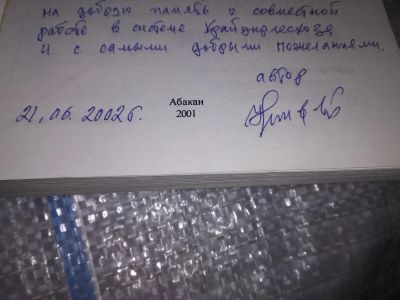 на добрую память о совместной
работе в системе Крайпотребсоюза
и с самыми добрыми пожеланиями.
автор
21.06.2002г.
Абакан
2001